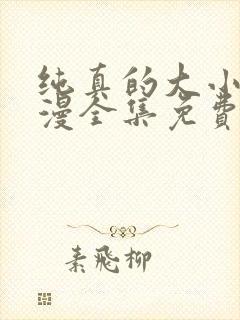 纯真的大小
漫全集免费
素飛柳